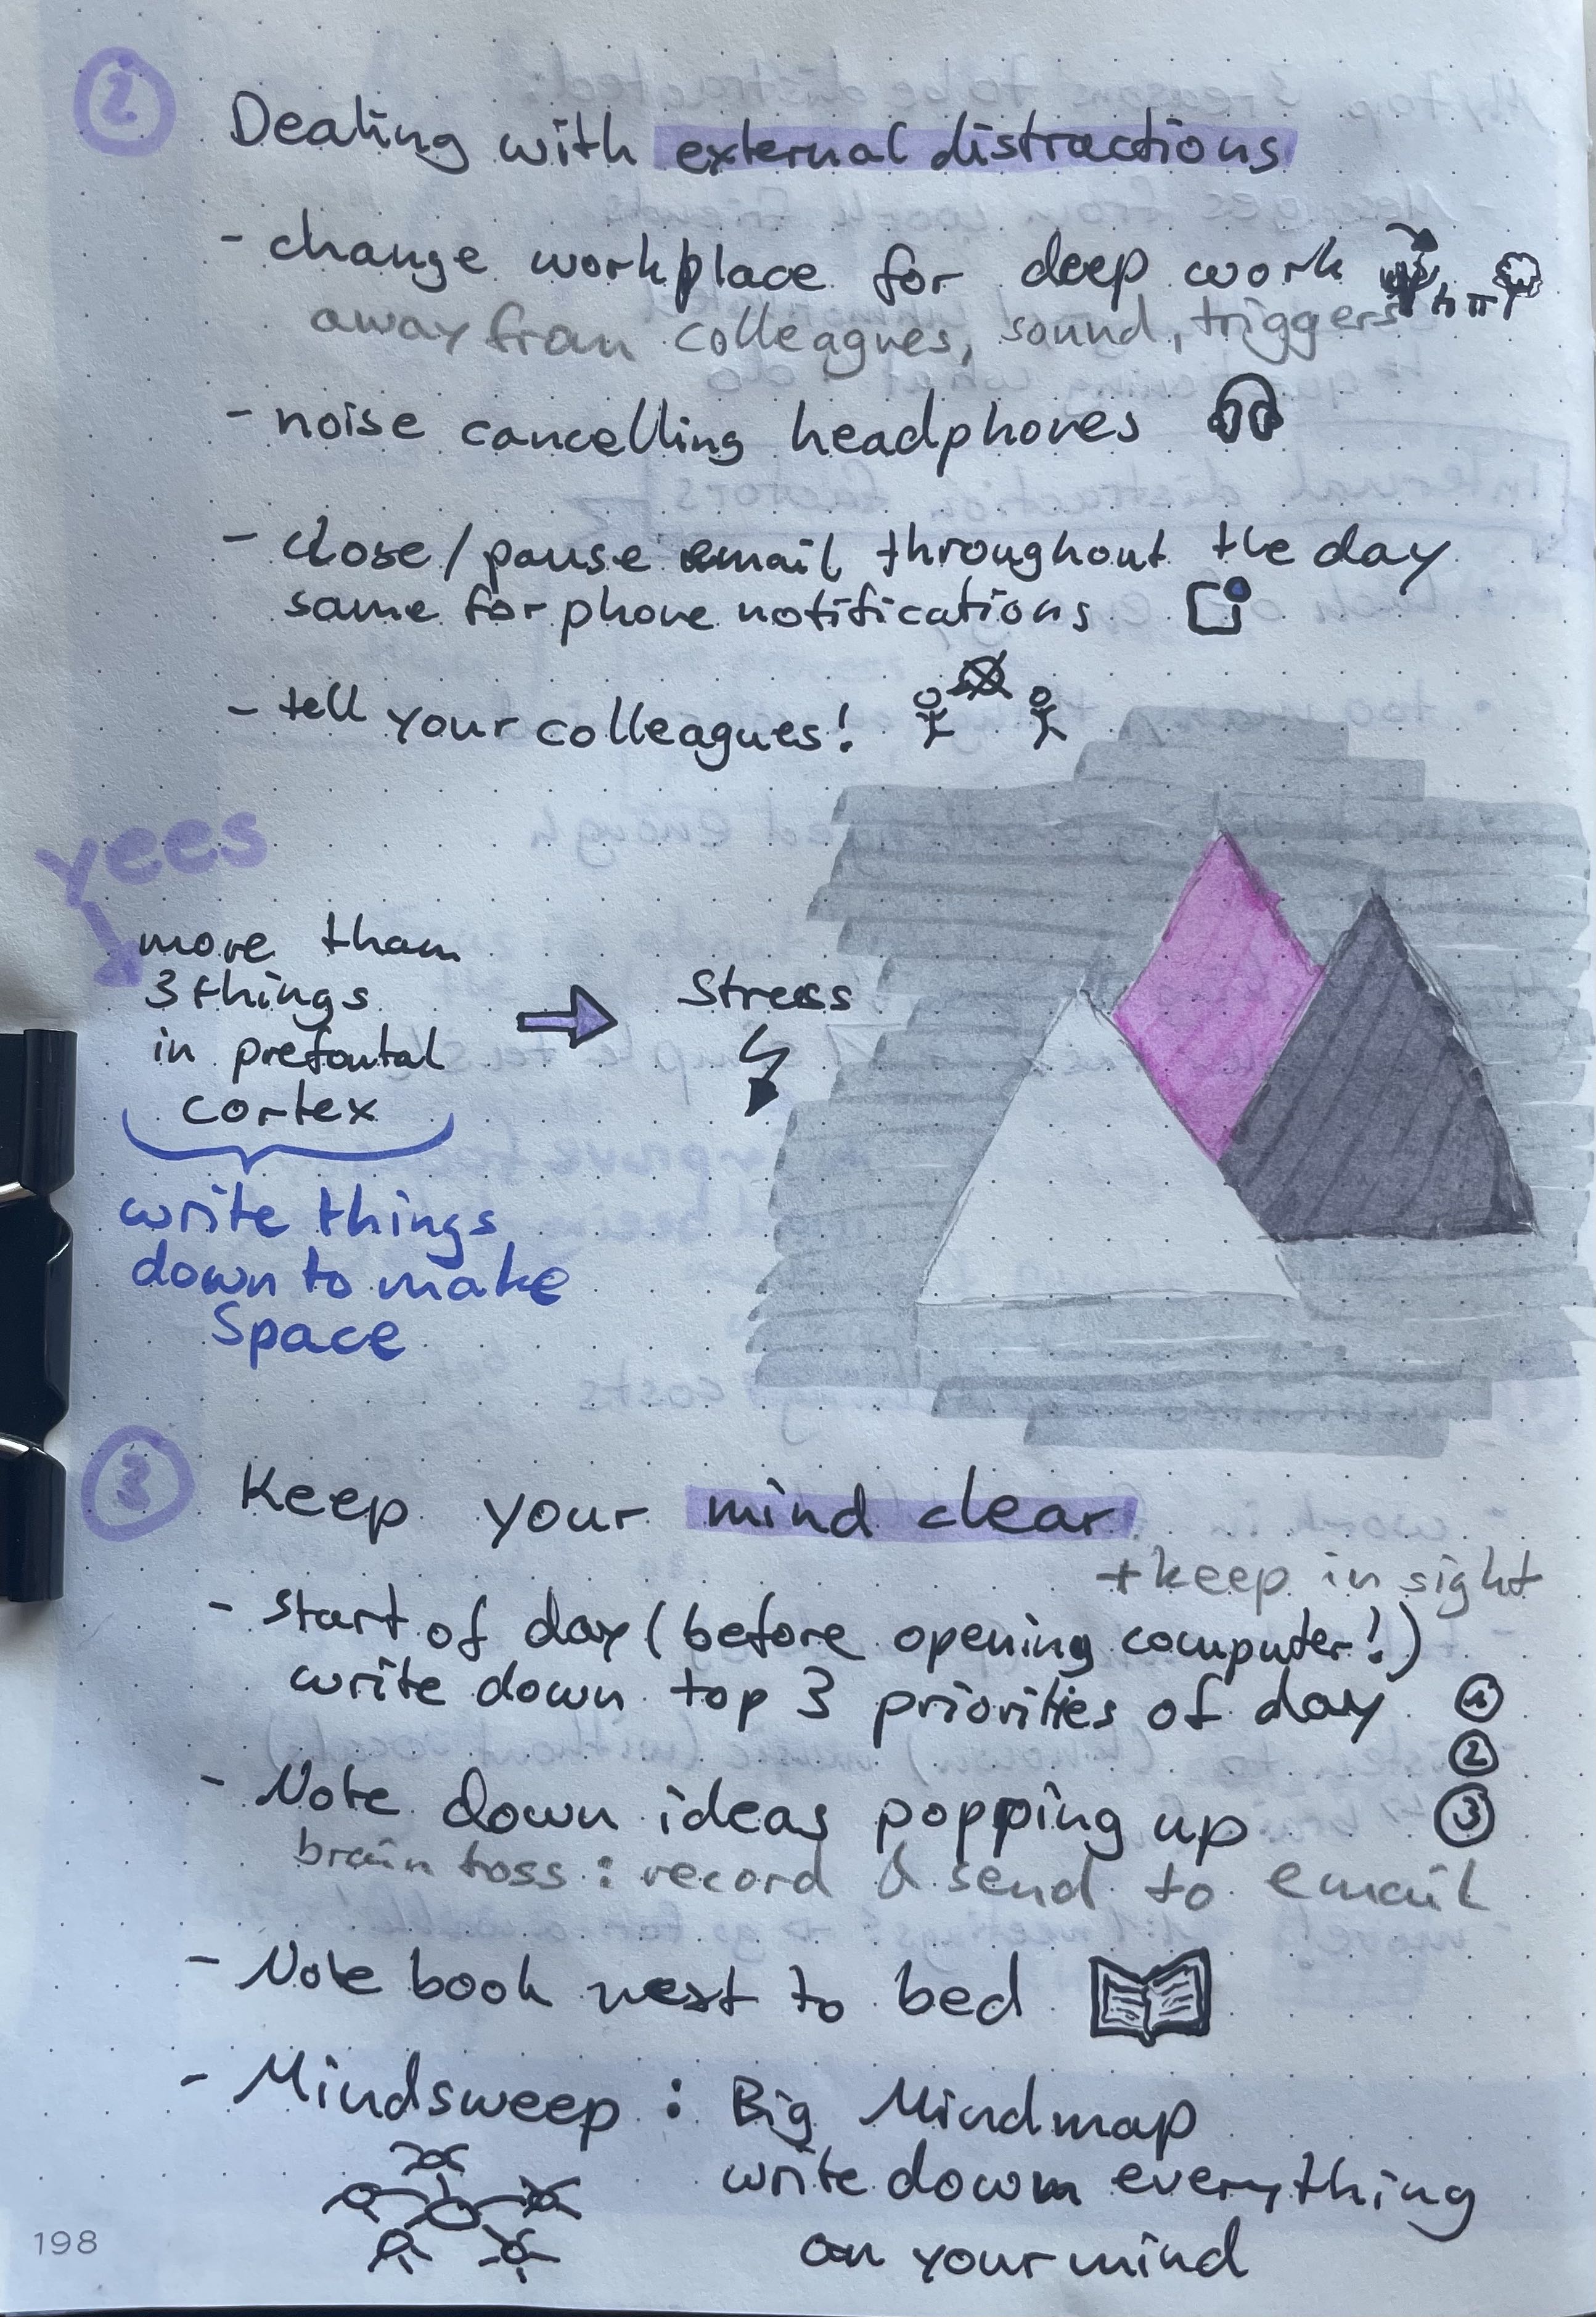 2
Dealing with external distractions
- change workplace for deep work
away from colleagues, sound, triggers
- noise cancelling headphones
- close/pause email throughout the day
same for phone notifications
- tell your colleagues!
yees
more than
3 things
in prefontal
cortex
Stress
write things
down to make
Space
3
Keep your mind clear
+ keep in sight
- start of day (before opening computer!)
write down top 3 priorities of day
1
2
3
- Note down ideas popping up
brain toss: record & send to email
- Note book next to bed
- Mindsweep: Big Mindmap
write down everything
on your mind
198